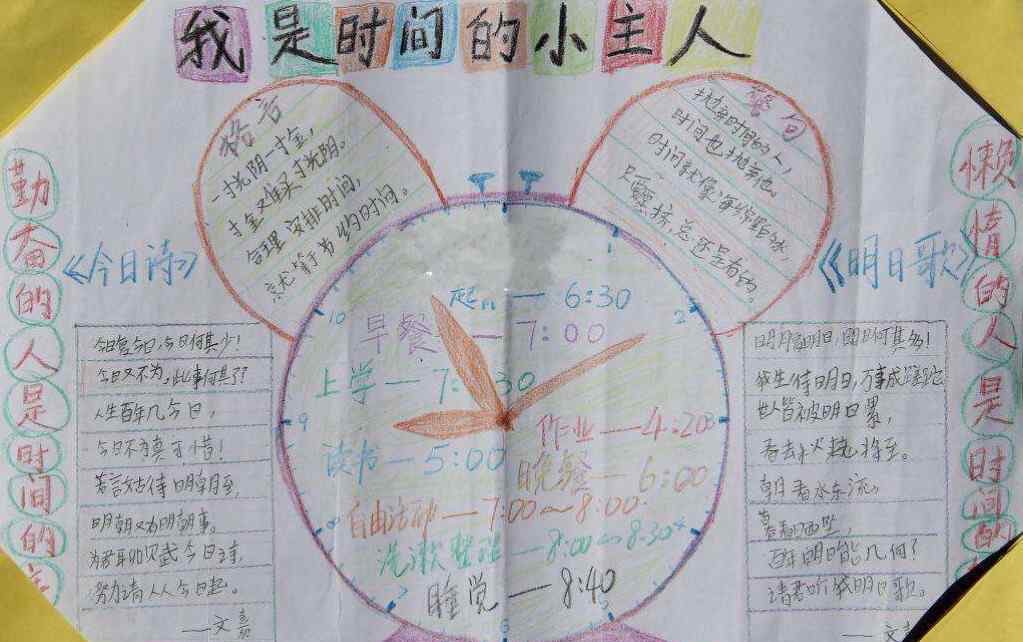 我是时间的小主人
格言
一寸光阴一寸金，
寸金难买寸光阴。
合理安排时间，
就等于节约时间。
警句
抛弃时间的人，
时间也抛弃他。
时间就像海绵里的水，
只要挤，总还是有的。
勤奋的人是时间的
《今日诗》
今日复今日，今日何其少！
今日又不为，此事何其了？
人生百年几今日，
今日不为真可惜！
若言姑待明朝至，
明朝又为明朝事。
为君聊赋今日诗，
努力请从今日起。
——文嘉
起 — 6:30
早餐 — 7:00
上学 — 7:30
作业 — 4:20
读书 — 5:00
晚餐 — 6:00
自由活动 — 7:00～8:00
洗漱整理 — 8:00～8:30
睡觉 — 8:40
1
2
3
7
8
9
10
《明日歌》
明日复明日，明日何其多！
我生待明日，万事成蹉跎
世人皆被明日累，
春去秋来老将至。
朝看水东流，
暮看日西坠，
百年明日能几何？
请君听我明日歌。
——文嘉
懒惰的人是时间的